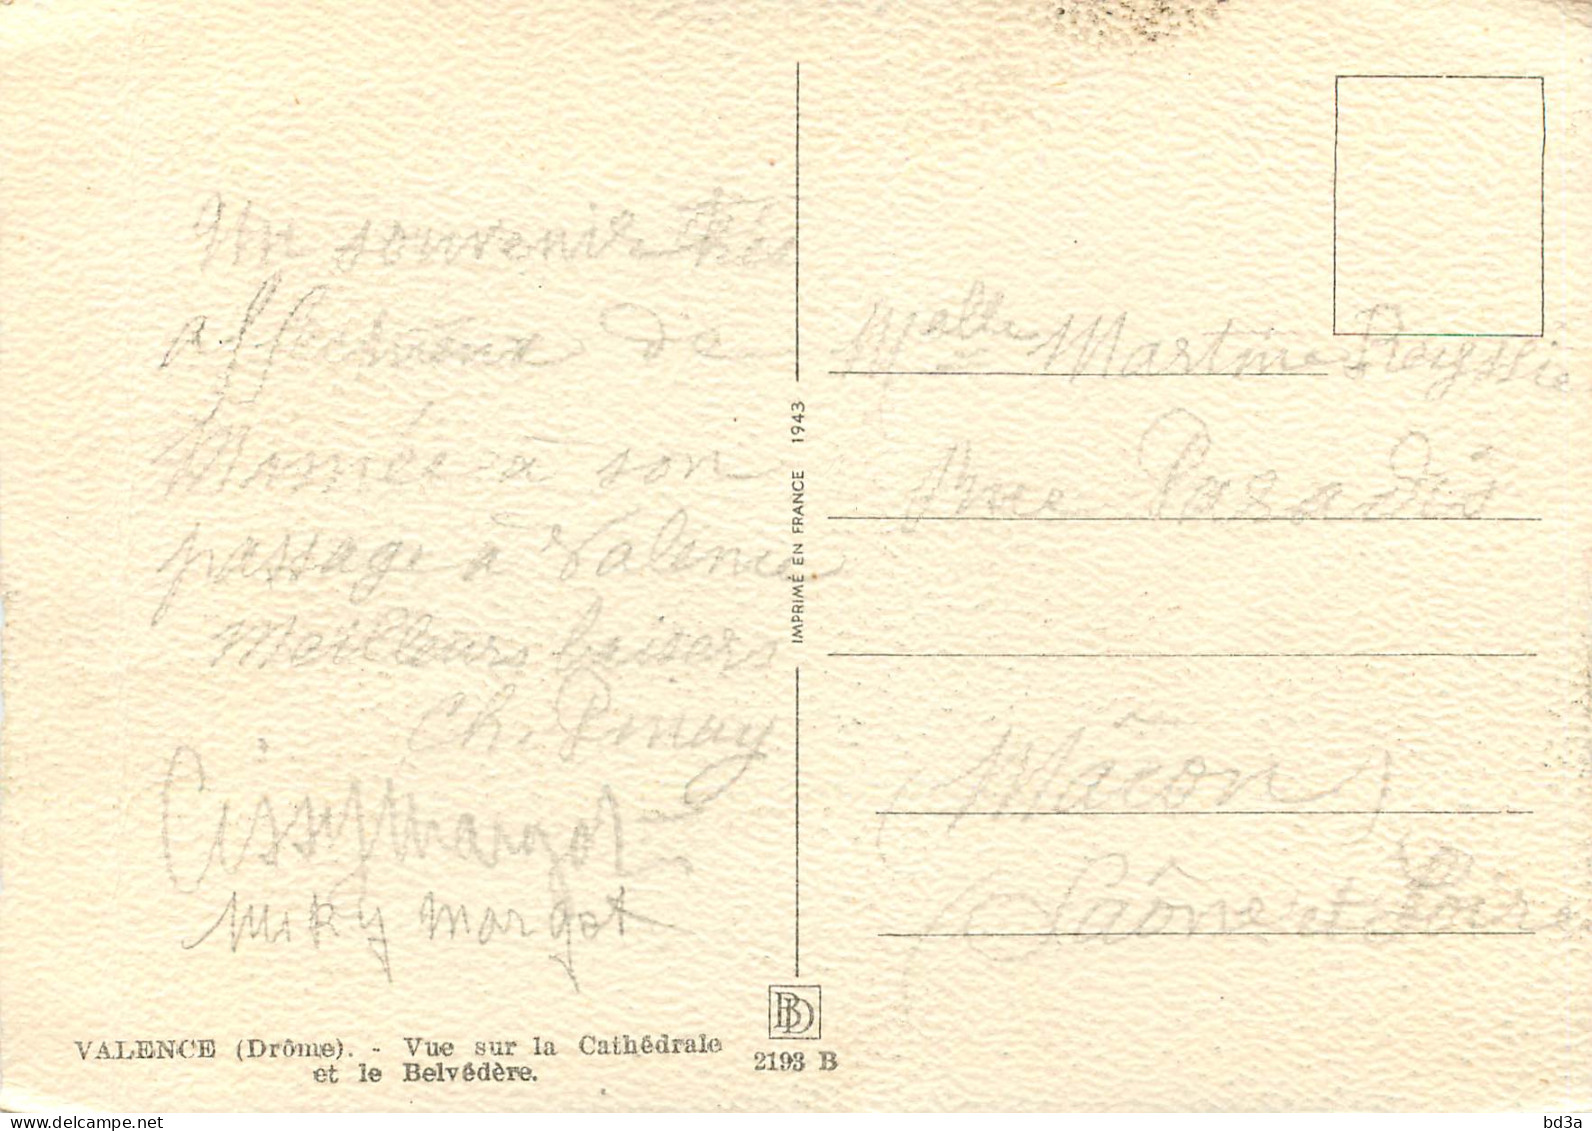 Un souvenir très
affectueux de
Mémée à son
passage à Valence
Meilleurs baisers
Ch. Pinay
Cissy Margot
Miky Margot
VALENCE (Drôme). - Vue sur la Cathédrale
et le Belvédère.
IMPRIMÉ EN FRANCE 1943
BD
2193 B
Malle Martine Reyssié
Rue Paradis
Mâcon
(Saône et Loire
www.delcampe.net
bd3a